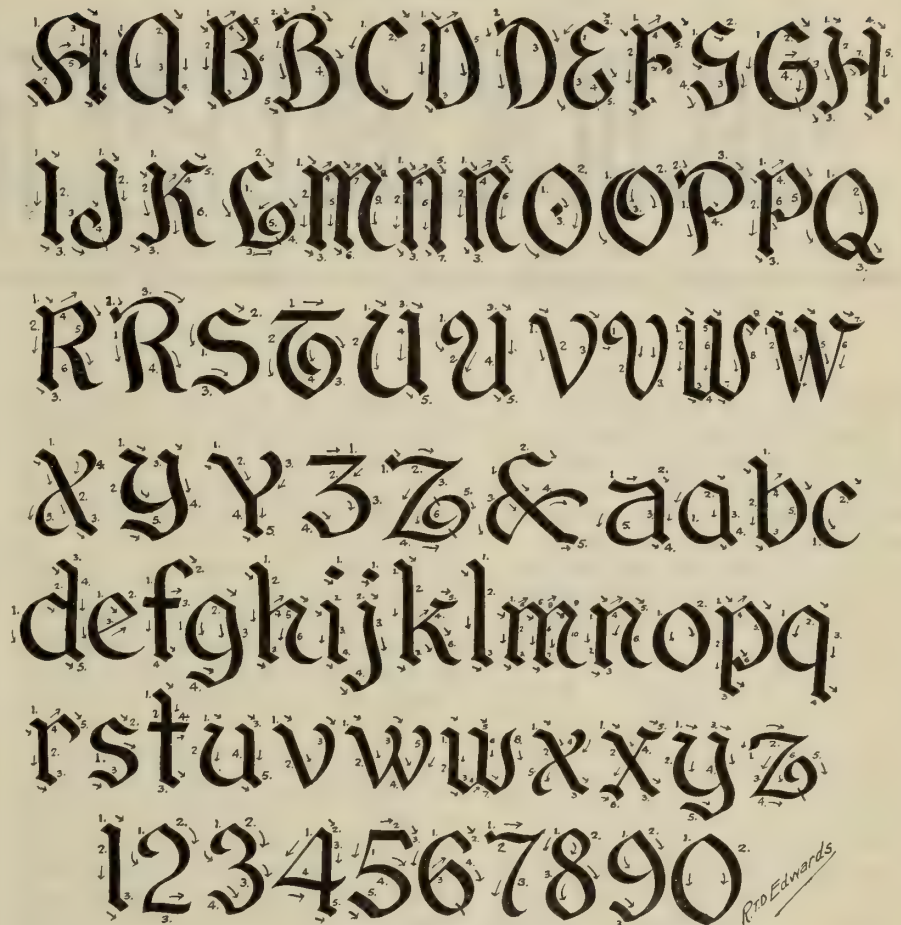 AABBCDDEFGGH
IJKLMNNOOPPQ
RRSTUUVVWW
XYYZZ&aabc
defghijklmnopq
rstuvwwxxyz
1234567890
R.T.D Edwards.